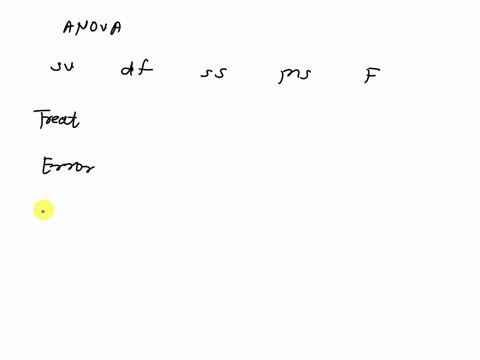 ANOVA
SV df SS MS F
Treat
Error